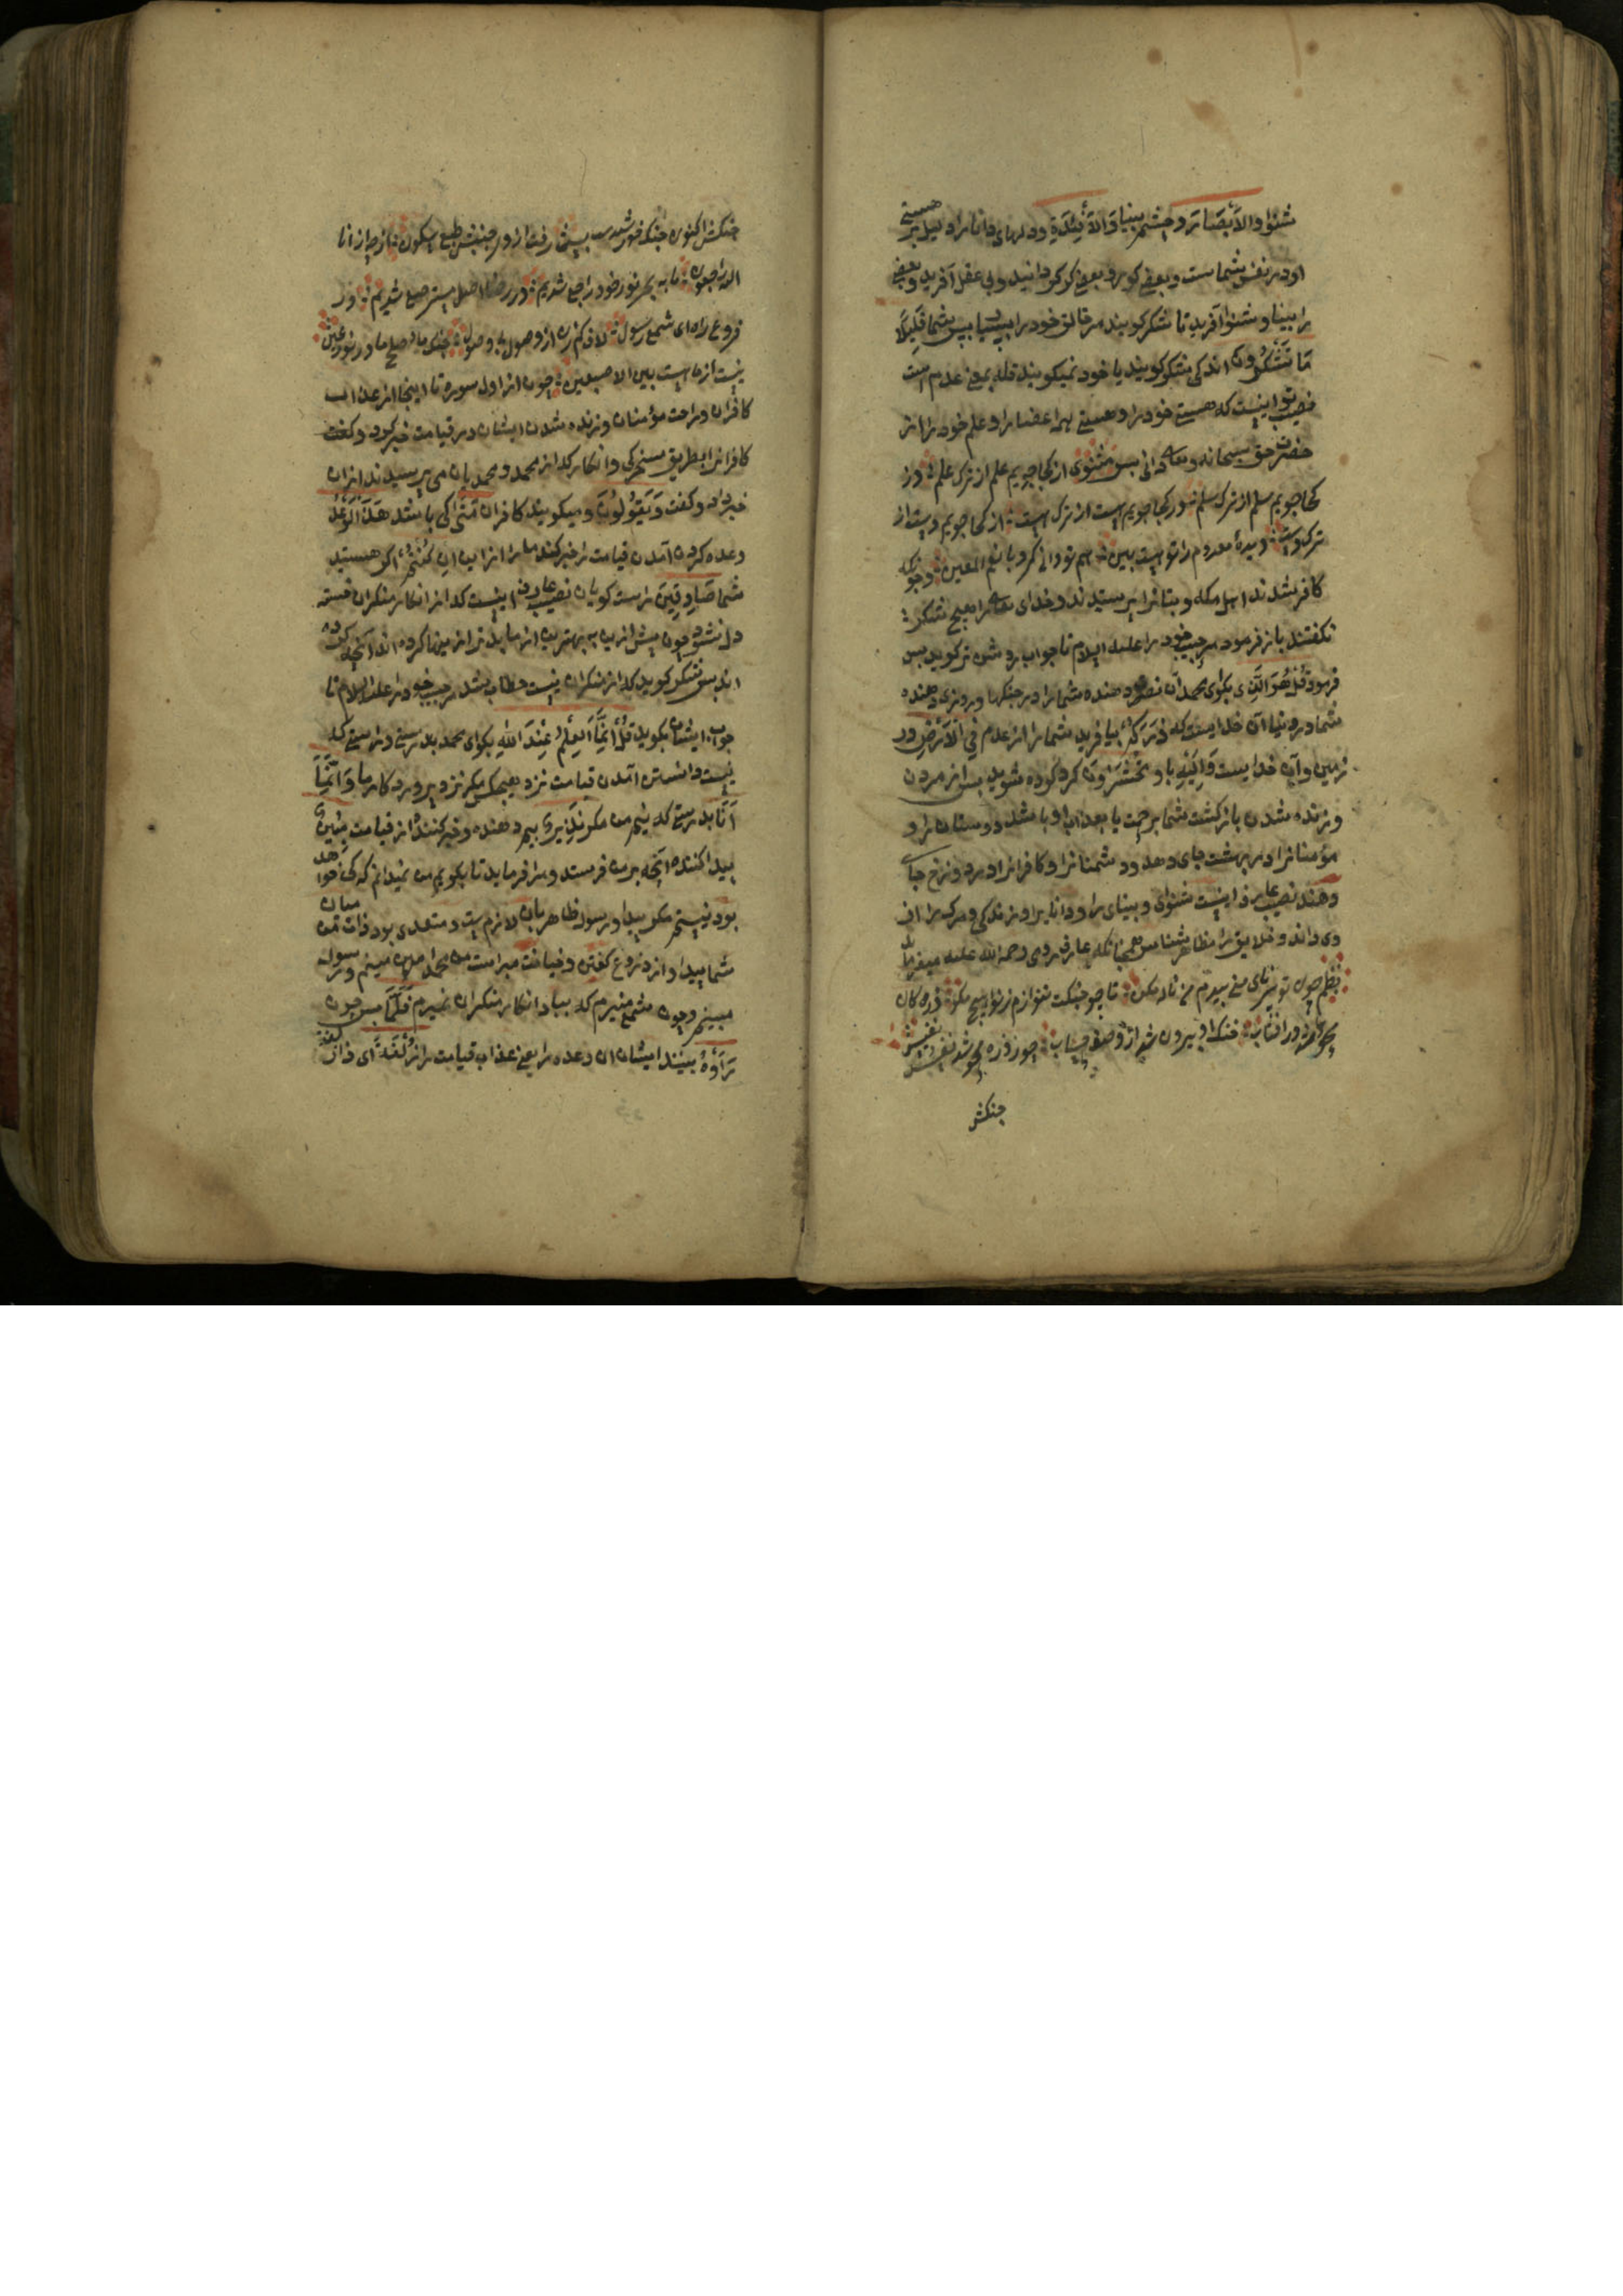 شنوا والابصار و چشم بینا والافئدة و دلهای دانا را دلیل بر هستی
او در نفس شماست و بعضی کور و بعضی کر کردانید و بی عقل آفرید و بعضی
را بینا و شنوا آفرید تا شکر کویند مر خالق خود را پس شما قلیلا
ما تشکرون اندکی شکر کویند یا خود نمیکویند قله بمعنی عدم است
نصیب تو اینست که هستی خود را و هستی همه اعضا را و علم خود را از
حضرت حق سبحانه و تعالی دانی پس مثنوی از کجا جویم علم از ترک علم در
کجا جویم سلم از ترک سلم از کجا جویم هست از ترک هست از کجا جویم دست از
ترک دست دیدهٔ معدوم را تو هست بین هم تو دانی کرد یا نعم المعین و چونکه
کافر شدند اهل مکه و بتانرا پرستیدند و خدای تعالی را هیچ شکر
نکفتند باز فرمود مر حبیب خود را علیه السلام تا جواب روشن تر کوید پس
فرمود قل هو الذی بکوی محمد آن نصرت دهنده شما را در جنکها و روزی دهنده
شما در دنیا آن خدایست که ذرأکم بیافرید شما را از عدم فی الارض در
زمین و آن خدایست والیه باو تحشرون کرد کرده شوید پس از مردن
و زنده شدن بازکشت شما برحمت یا بعذاب او باشد دوستان را و
مؤمنانرا در بهشت جای دهد و دشمنانرا و کافرانرا در دوزخ جای
دهند نصیب عارف اینست شنوای و بینای را و دانایرا و زندکی و مرک را از
وی داند و خلایق را مظاهر شناسد همچنانکه عارف رومی رحمة الله علیه میفرماید
نظم چون تو سرنای منی بی دم من ناله مکن تا چو چنکت ننوازم ز نوا هیچ مکو ذره کان
محو شد در افتاب جنک او بیرون شد از وصف حساب چون ز ذره محو شد نفس و نفس
جنکش
جنکش اکنون جنک خورشیدست بس رفت از وی جنبش طبع و سکون از چه از انا
الیه راجعون ما به بحر نور خود راجع شدیم در رضاع اصل مسترضع شدیم در
فروع راه ای شمع رسول لاف کم زن از وصول بی وصول جنک ما و صلح ما در نور عین
نیست از ما هست بین الاصبعین چون از اول سوره تا اینجا از عذاب
کافران و راحت مؤمنان و زنده شدن ایشان در قیامت خبر کرد و کفت
کافرانرا بطریق مسخرکی و انکار که از محمد و محمدیان می پرسیدند از ان
خبر داد و کفت و یقولون و میکویند کافران متی کی باشد هذا الوعد
وعده کردن آمدن قیامت را خبر کنید ما را از این ان کنتم اکر هستید
شما صادقین راست کویان نصیب عارف اینست که از انکار منکران خسته
دل نشود چون پیش ازین به بهترین از ما بدتر ازین ماکرده اند آنچه کرده
اند پس شکر کوید که از منکران نیست خطاب شد مر حبیب خود را علیه السلام تا
جواب ایشان بکوید قل انما العلم عند الله بکوی محمد بدرستی و راستی که
نیست دانستن آمدن قیامت نزد هیچکس مکر نزد پروردکار ما و انما
انا بدرستی که نیم من مکر نذیر بیم دهنده و خبرکننده از قیامت مبین
پیداکننده آنچه بر من فرستد و مرا فرماید تا بکویم من نمیدانم که کی خواهد
بود نیستم مکر پیدا و رسول ظاهر بیان لازم ست و متعدی بود ذات من میان
شما پیدا و از دروغ کفتن و خیانت مبراست من محمد امین مبینم و رسول
مبینم و چون شمع منیرم که بباد انکار منکران نمیرم فلما پس چون
رأوه بینند ایشان ان وعده را یعنی عذاب قیامت را زلفة ای ذا زلفة